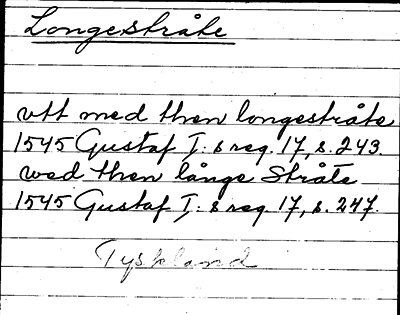 Longestråte
vtt med then longestråte
1545 Gustaf I:s reg. 17, s. 243.
wed then långe Stråte
1545 Gustaf I:s reg. 17, s. 247.
Tyskland